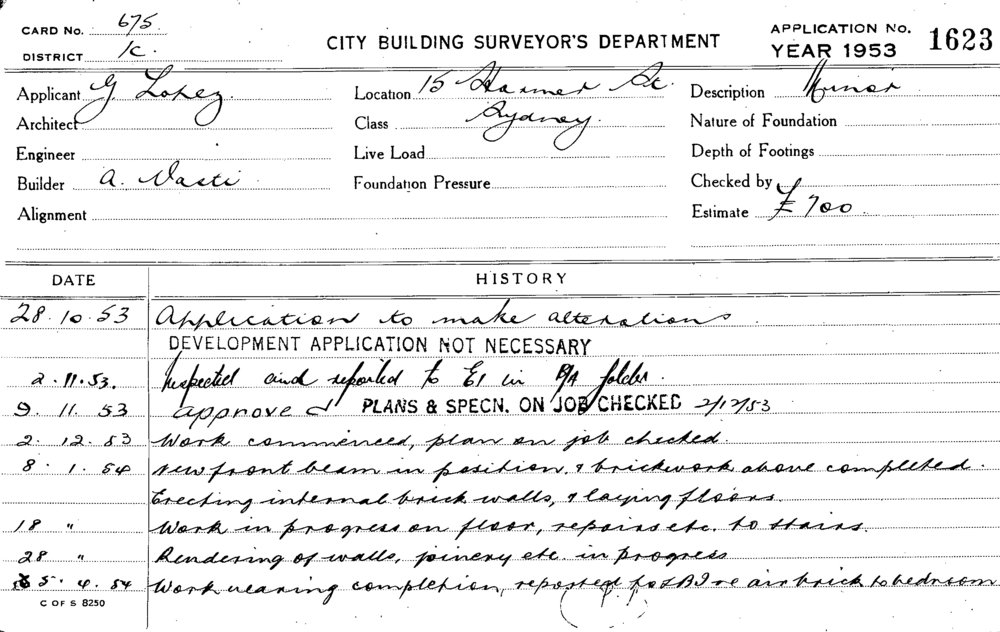 CARD No. 675
DISTRICT 1C
CITY BUILDING SURVEYOR'S DEPARTMENT
APPLICATION No. 1623
YEAR 1953
Applicant G. Lopez
Location 15 Harmer St.
Description Minor
Architect
Class Sydney.
Nature of Foundation
Engineer
Live Load
Depth of Footings
Builder A. Nasti
Foundation Pressure
Checked by
Alignment
Estimate £ 700
DATE HISTORY
28.10.53 Application to make alterations
DEVELOPMENT APPLICATION NOT NECESSARY
2.11.53. Inspected and reported to E1 in B/A folder.
9.11.53 approved PLANS & SPECN. ON JOB CHECKED 2/12/53
2.12.53 Work commenced, plan on job checked.
8.1.54 New front beam in position, & brickwork above completed.
Erecting internal brick walls, & laying floors.
18 " Work in progress on floor, repairs etc. to stairs.
28 " Rendering of walls, joinery etc. in progress
5.4.54 Work nearing completion, reported to re air brick to bedroom
C OF S 8250